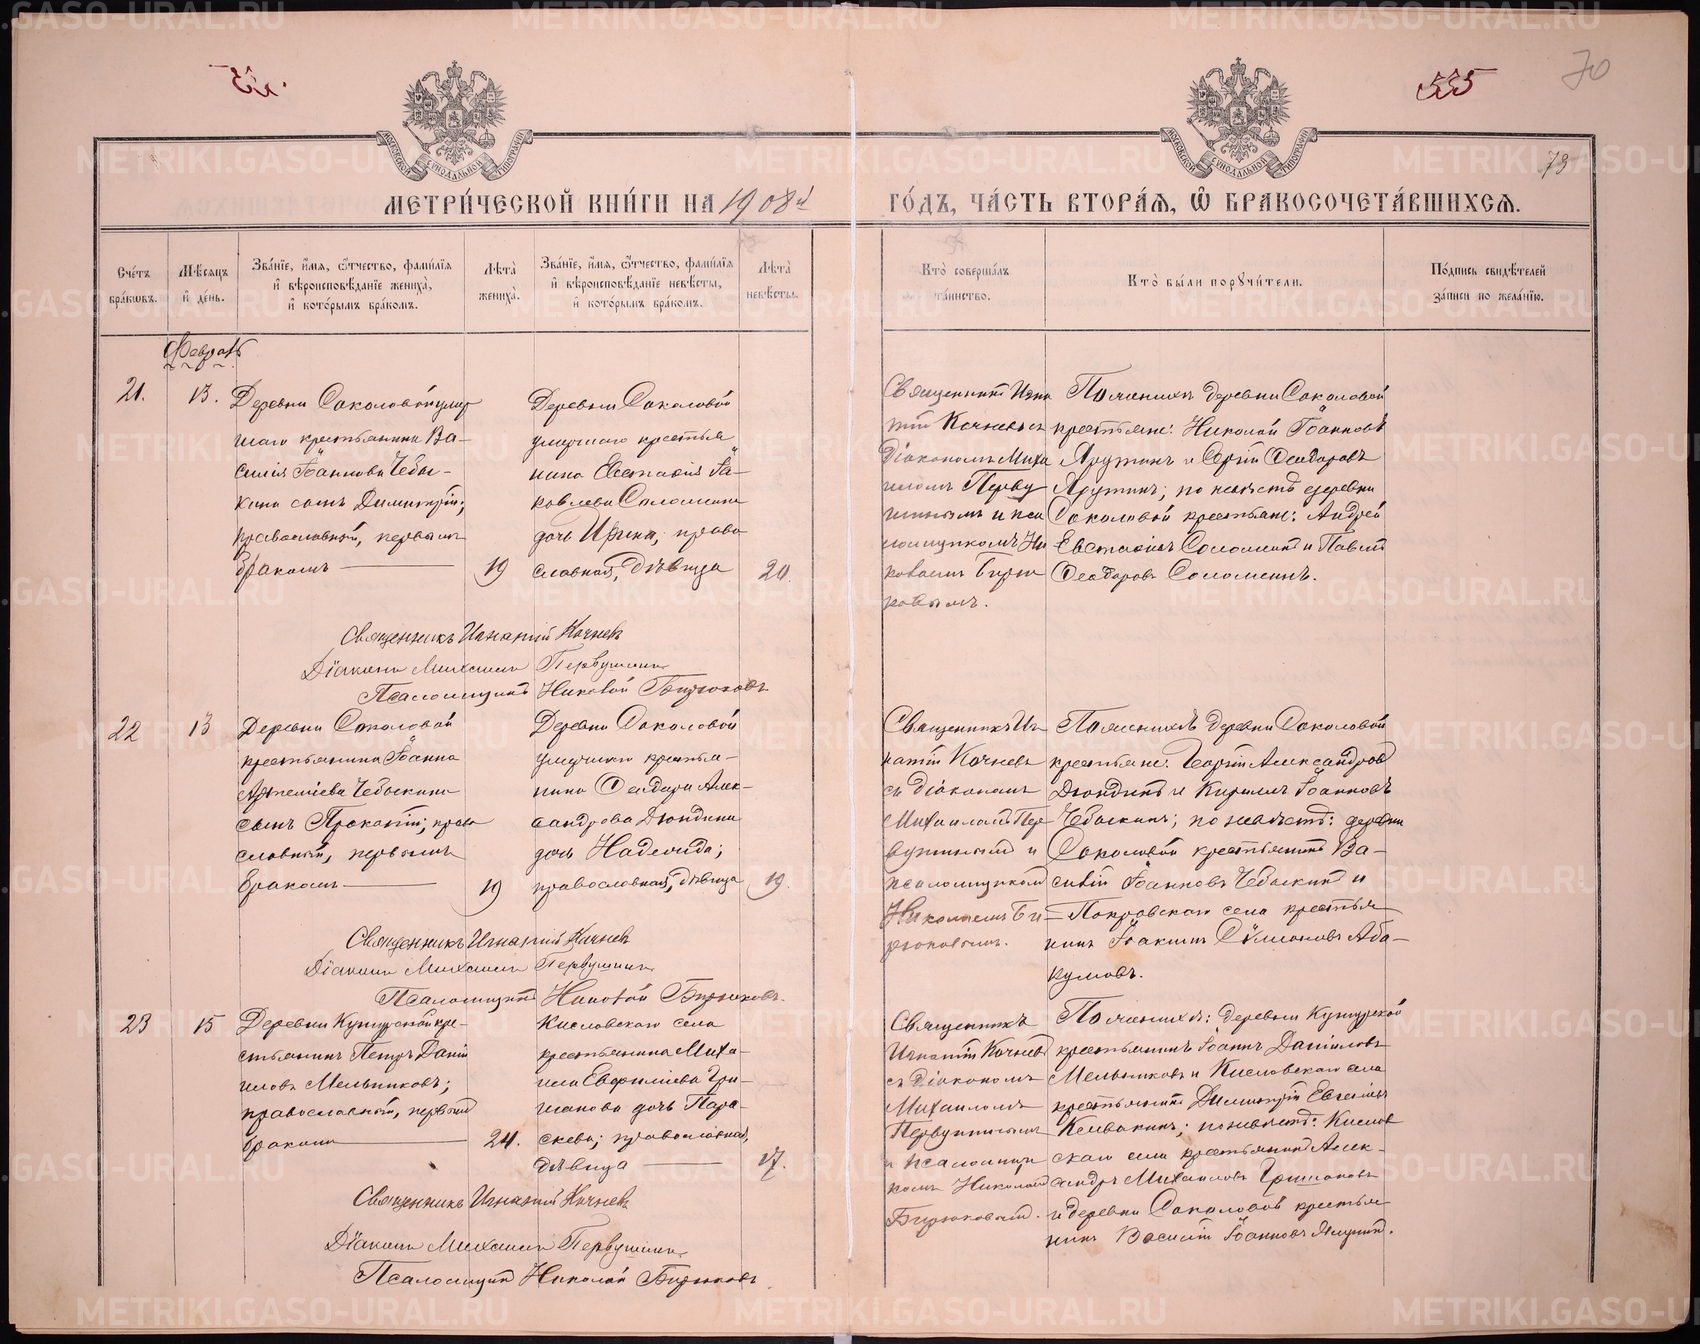 555
70
79
МЕТРИ́ЧЕСКОЙ КНИ́ГИ НА 1908й ГО́ДЪ, ЧА́СТЬ ВТОРА́Я, Ѽ БРАКОСОЧЕТА́ВШИХСЯ.
Сче́тъ бра́ковъ.
Мѣ́сяцъ и҆ де́нь.
Зва́нїе, и҆́мя, ѻ҆́тчество, фами́лїя и҆ вѣроисповѣ́данїе жениха̀, и҆ кото́рымъ бра́комъ.
Лѣта̀ жениха̀.
Зва́нїе, и҆́мя, ѻ҆́тчество, фами́лїя и҆ вѣроисповѣ́данїе невѣ́сты, и҆ кото́рымъ бра́комъ.
Лѣта̀ невѣ́сты.
Кто̀ соверша́лъ та́инство.
Кто̀ бы́ли порꙋчи́тели.
По́дпись свидѣ́телей за́писи по жела́нїю.
Февраль
21.
13.
Деревни Соколовой умер
шаго крестьянина Ва-
силія Іоаннова Чебы-
кина сынъ Димитрій;
православный, первымъ
бракомъ
19
Деревни Соколовой
умершаго крестья
нина Евстафія Іа-
ковлева Соломеина
дочь Ирина, право
славная, дѣвица
20.
Священникъ Игна
тій Кочневъ съ
Діакономъ Миха
иломъ Перву
шинымъ и пса
ломщикомъ Ни
колаемъ Бирю
ковымъ.
По женихѣ деревни Соколовой
крестьяне: Николай Іоанновъ
и Сергій Ѳеодоровъ
по невѣстѣ деревни
Соколовой крестьяне: Андрей
Евстафіевъ Соломеинъ и Павелъ
Ѳеодоровъ Соломеинъ.
Священникъ Игнатій Кочневъ
Діаконъ Михаилъ Первушинъ
Псаломщикъ Николай Бирюковъ
22
13
Деревни Соколовой
крестьянина Іоанна
Артеміева Чебыкина
сынъ Прокопій; право
славный, первымъ
бракомъ
19
Деревни Соколовой
умершаго крестья-
нина Ѳеодора Алек-
сандрова Дюндина
дочь Надежда;
православная, дѣвица
19.
Священникъ Иг
натій Кочневъ
съ діакономъ
Михаиломъ Пер
вушинымъ и
псаломщикомъ
Николаемъ Би
рюковымъ.
По женихѣ деревни Соколовой
крестьяне: Георгій Александровъ
Дюндинъ и Кириллъ Іоанновъ
Чебыкинъ; по невѣстѣ: деревни
Соколовой крестьянинъ Ва-
силій Іоанновъ Чебыкинъ и
Покровскаго села крестья
нинъ Іоакимъ Сѵмеоновъ Аба-
кумовъ.
Священникъ Игнатій Кочневъ
Діаконъ Михаилъ Первушинъ
Псаломщикъ Николай Бирюковъ.
23
15
Деревни кре-
стьянинъ Петръ Даніи
иловъ Мельниковъ;
православный, первымъ
бракомъ
24.
Кисловскаго села
крестьянина Миха-
ила Евфиміева Гри-
шанова дочь Пара-
скева; православная,
дѣвица
17.
Священникъ
Игнатій Кочневъ
съ діакономъ
Михаиломъ
Первушинымъ
и псаломщи
комъ Николаемъ
Бирюковымъ.
По женихѣ: деревни
крестьянинъ Іоаннъ Даніиловъ
Мельниковъ и Кисловскаго села
крестьянинъ Димитрій
по невѣстѣ: Кислов
скаго села крестьянинъ Алек-
сандръ Михаиловъ Гришановъ
и деревни Соколовой крестья
нинъ Василій Іоанновъ
Священникъ Игнатій Кочневъ
Діаконъ Михаилъ Первушинъ
Псаломщикъ Николай Бирюковъ
METRIKI.GASO-URAL.RU